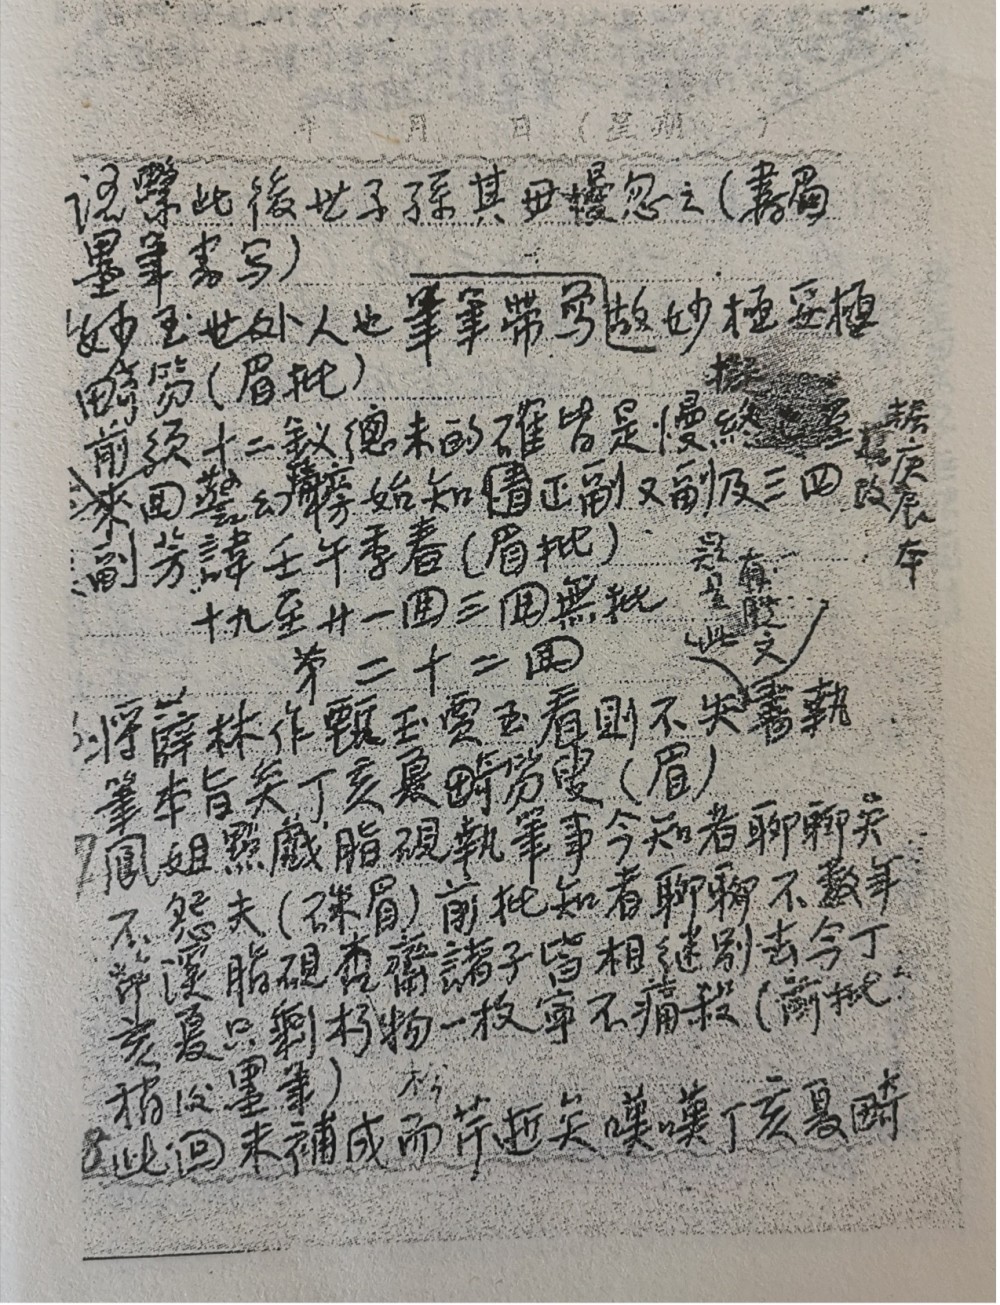 年 月 日 (星期 )
此後世子孫其毋慢忽之(書眉
墨筆書写)
妙玉世外人也筆筆帶写故妙極妥極
畸笏(眉批)
擬
前須十二釵總未的確皆是慢終至
據庚辰本
改
末回警幻情榜始知情正副又副及三四
副芳諱壬午季春(眉批)
十九至廿一回三回無批
是 此
文
第二十二回
將薛林作甄玉賈玉看則不失執
筆本旨矣丁亥夏畸笏叟(眉)
鳳姐點戲脂硯執筆事今知者聊聊矣
不怨夫(硃眉)前批知者聊聊不數年
芹溪脂硯杏齋諸子皆相継别去今丁
亥夏只剩朽物一枚寧不痛殺(前批
稍後墨筆)
8此回未補成而芹逝矣嘆嘆丁亥夏畸